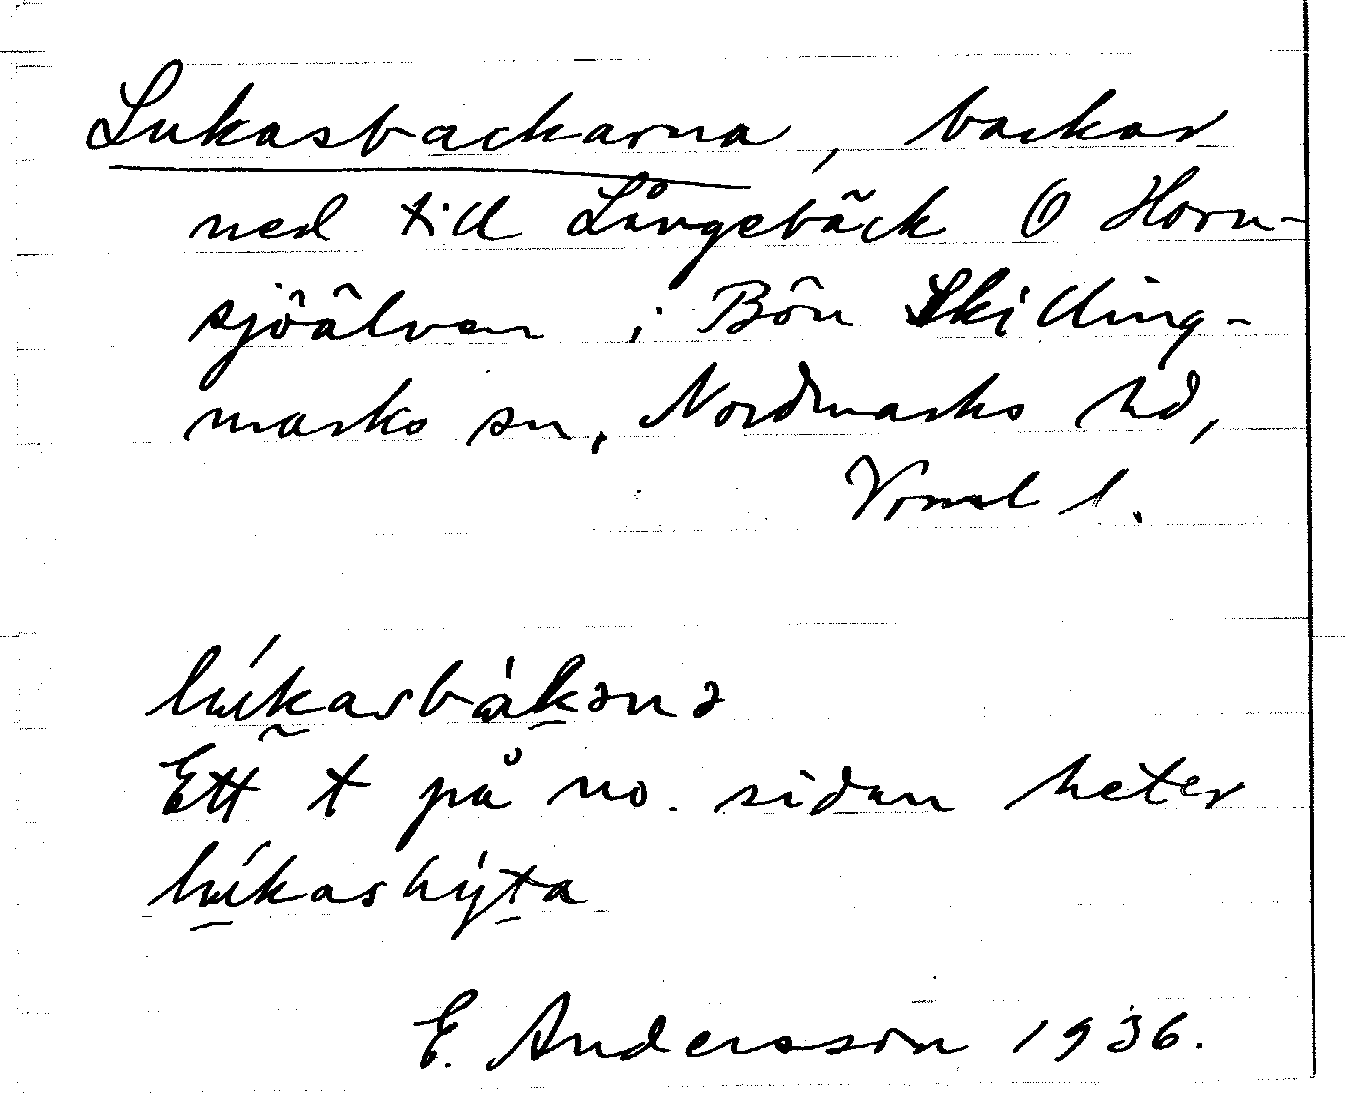 Lukasbackarna, backar
ned till Långebäck O Horn-
sjöälven i Bön Skilling-
marks sn, Nordmarks hd,
Vrml l.
lúkasbàkǝnǝ
Ett t på no. sidan heter
lúkashýta
E. Andersson 1936.